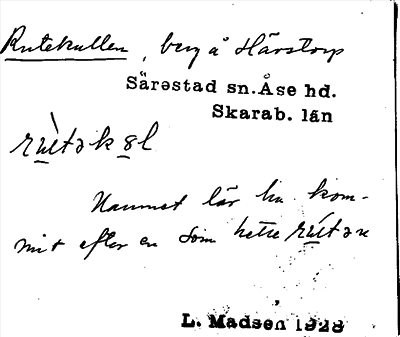 Rutekullen, berg å Härstorp
Särestad sn. Åse hd.
Skarab. län
rùtəkəl
Namnet lär ha kom-
mit efter en som hette rútən
L. Madsen 1928